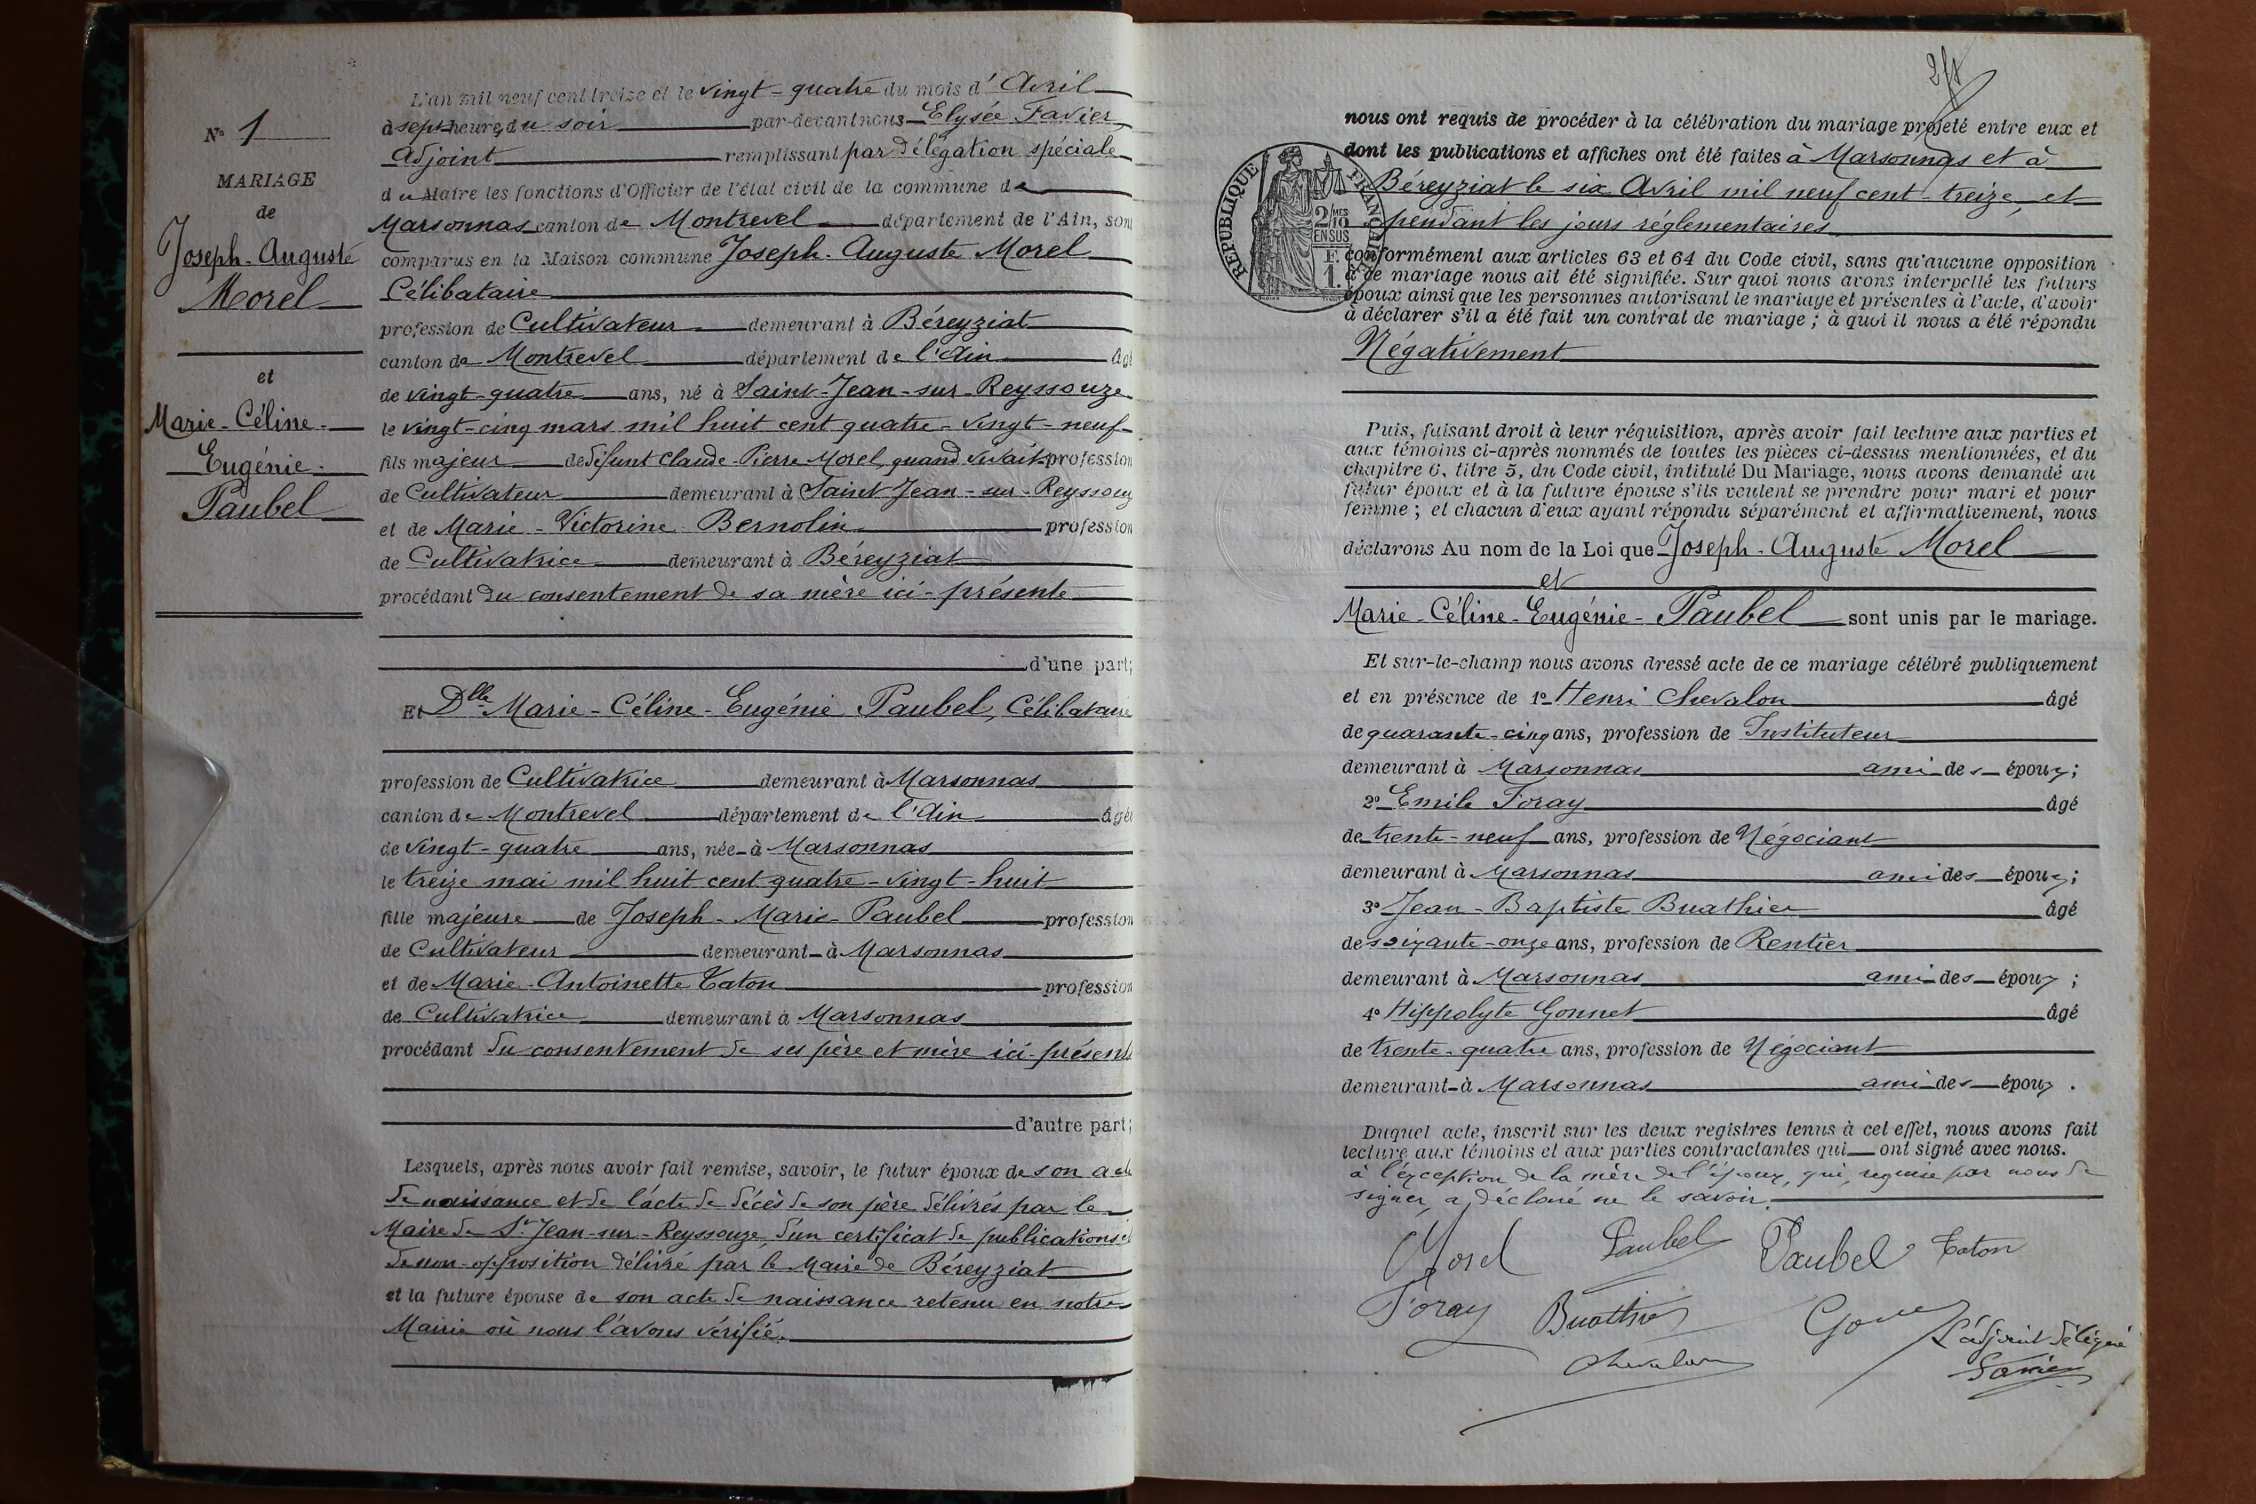 N° 1
MARIAGE
de
Joseph-Auguste
Morel
et
Marie-Céline-
Eugénie-
Paubel
L'an mil neuf cent treize et le vingt-quatre du mois d'Avril
à sept heures du soir par-devant nous Elysée Favier
Adjoint remplissant par délégation spéciale
du Maire les fonctions d'Officier de l'état civil de la commune de
Marsonnas canton de Montrevel département de l'Ain, sont
comparus en la Maison commune Joseph-Auguste Morel
Célibataire
profession de Cultivateur demeurant à Béreyziat
canton de Montrevel département de l'Ain âgé
de vingt-quatre ans, né à Saint-Jean-sur-Reyssouze
le vingt-cinq mars mil huit cent quatre-vingt-neuf
fils majeur de défunt Claude-Pierre Morel, quand vivait profession
de Cultivateur demeurant à Saint Jean-sur-Reyssouz
et de Marie-Victorine Bernolin profession
de Cultivatrice demeurant à Béreyziat
procédant du consentement de sa mère ici-présente
d'une part;
Et Dlle Marie-Céline-Eugénie Paubel, Célibataire
profession de Cultivatrice demeurant à Marsonnas
canton de Montrevel département de l'Ain âgée
de vingt-quatre ans, née à Marsonnas
le treize mai mil huit cent quatre-vingt-huit
fille majeure de Joseph-Marie-Paubel profession
de Cultivateur demeurant à Marsonnas
et de Marie-Antoinette Caton profession
de Cultivatrice demeurant à Marsonnas
procédant du consentement de ses père et mère ici-présents
d'autre part;
Lesquels, après nous avoir fait remise, savoir, le futur époux de son acte
de naissance et de l'acte de décès de son père délivrés par le
Maire de St Jean-sur-Reyssouze, d'un certificat de publications et
de non-opposition délivré par le Maire de Béreyziat
et la future épouse de son acte de naissance retenu en notre
Mairie où nous l'avons vérifié.
nous ont requis de procéder à la célébration du mariage projeté entre eux et
dont les publications et affiches ont été faites à Marsonnas et à
Béreyziat le six Avril mil neuf cent-treize, et
pendant les jours réglementaires
RÉPUBLIQUE FRANÇAISE
2/MES
10
EN SUS
F.
1.
conformément aux articles 63 et 64 du Code civil, sans qu'aucune opposition
à ce mariage nous ait été signifiée. Sur quoi nous avons interpellé les futurs
époux ainsi que les personnes autorisant le mariage et présentes à l'acte, d'avoir
à déclarer s'il a été fait un contrat de mariage ; à quoi il nous a été répondu
Négativement
Puis, faisant droit à leur réquisition, après avoir fait lecture aux parties et
aux témoins ci-après nommés de toutes les pièces ci-dessus mentionnées, et du
chapitre 6, titre 5, du Code civil, intitulé Du Mariage, nous avons demandé au
futur époux et à la future épouse s'ils veulent se prendre pour mari et pour
femme ; et chacun d'eux ayant répondu séparément et affirmativement, nous
déclarons Au nom de la Loi que Joseph-Auguste Morel
et
Marie-Céline-Eugénie-Paubel sont unis par le mariage.
Et sur-le-champ nous avons dressé acte de ce mariage célébré publiquement
et en présence de 1° Henri Chevalon âgé
de quarante-cinq ans, profession de Instituteur
demeurant à Marsonnas ami des époux;
2° Emile Foray âgé
de trente-neuf ans, profession de Négociant
demeurant à Marsonnas ami des époux;
3° Jean-Baptiste Buathier âgé
de soixante-onze ans, profession de Rentier
demeurant à Marsonnas ami des époux;
4° Hippolyte Gonnet âgé
de trente-quatre ans, profession de Négociant
demeurant à Marsonnas ami des époux.
Duquel acte, inscrit sur les deux registres tenus à cet effet, nous avons fait
lecture aux témoins et aux parties contractantes qui ont signé avec nous.
à l'exception de la mère de l'époux, qui, requise par nous de
signer, a déclaré ne le savoir.
Morel Paubel Paubel Caton
Foray Buathier Gonnet L'adjoint délégué
Chevalon Favier